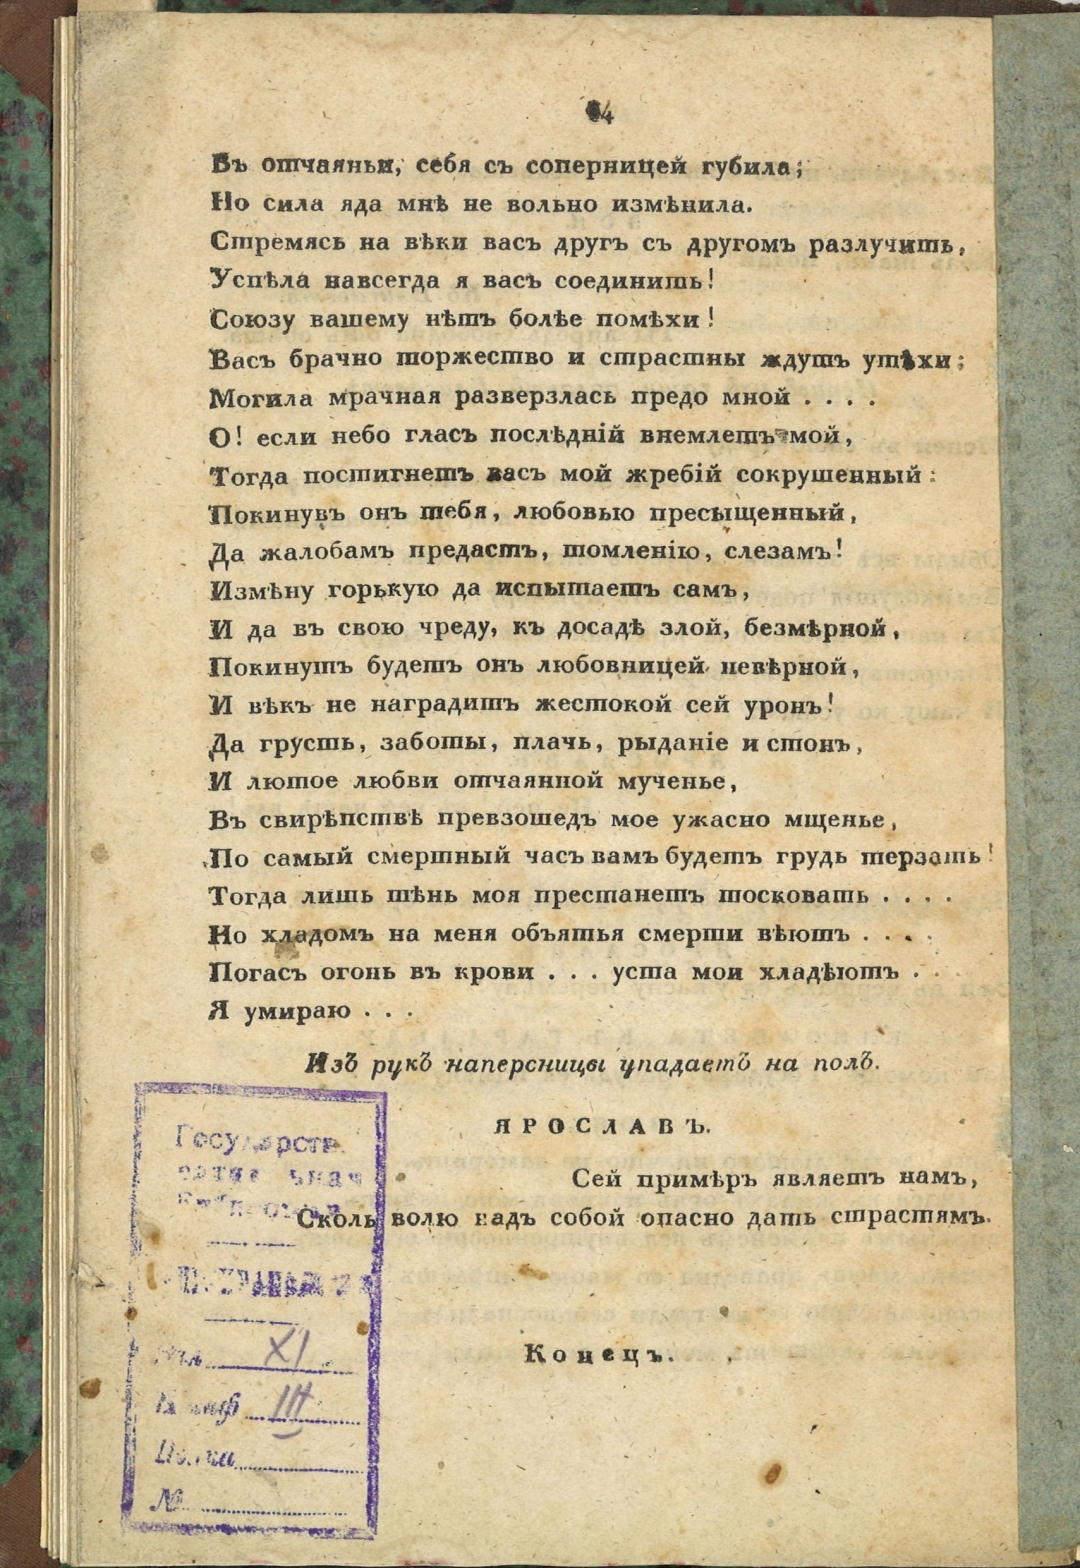 64
Въ отчаяньи, себя съ соперницей губила;
Но сила яда мнѣ не вольно измѣнила.
Стремясь на вѣки васъ другъ съ другомъ разлучить,
Успѣла навсегда я васъ соединить!
Союзу вашему нѣтъ болѣе помѣхи!
Васъ брачно торжество и страстны ждутъ утѣхи;
Могила мрачная разверзлась предо мной . . . .
О! если небо гласъ послѣдній внемлетъ мой,
Тогда постигнетъ васъ мой жребій сокрушенный:
Покинувъ онъ тебя, любовью пресыщенный,
Да жалобамъ предастъ, томленію, слезамъ!
Измѣну горькую да испытаетъ самъ,
И да въ свою чреду, къ досадѣ злой, безмѣрной,
Покинутъ будетъ онъ любовницей невѣрной,
И вѣкъ не наградитъ жестокой сей уронъ!
Да грусть, заботы, плачь, рыданіе и стонъ,
И лютое любви отчаянной мученье,
Въ свирѣпствѣ превзошедъ мое ужасно мщенье,
По самый смертный часъ вамъ будетъ грудь терзать!
Тогда лишь тѣнь моя престанетъ тосковать . . . .
Но хладомъ на меня объятья смерти вѣютъ . . . .
Погасъ огонь въ крови . . . уста мои хладѣютъ . .
Я умираю . . .
Изъ рукъ наперсницы упадаетъ на полъ.
ЯРОСЛАВЪ.
Сей примѣръ являетъ намъ,
Сколь волю надъ собой опасно дать страстямъ.
Конецъ.
XI
III
Полка
№